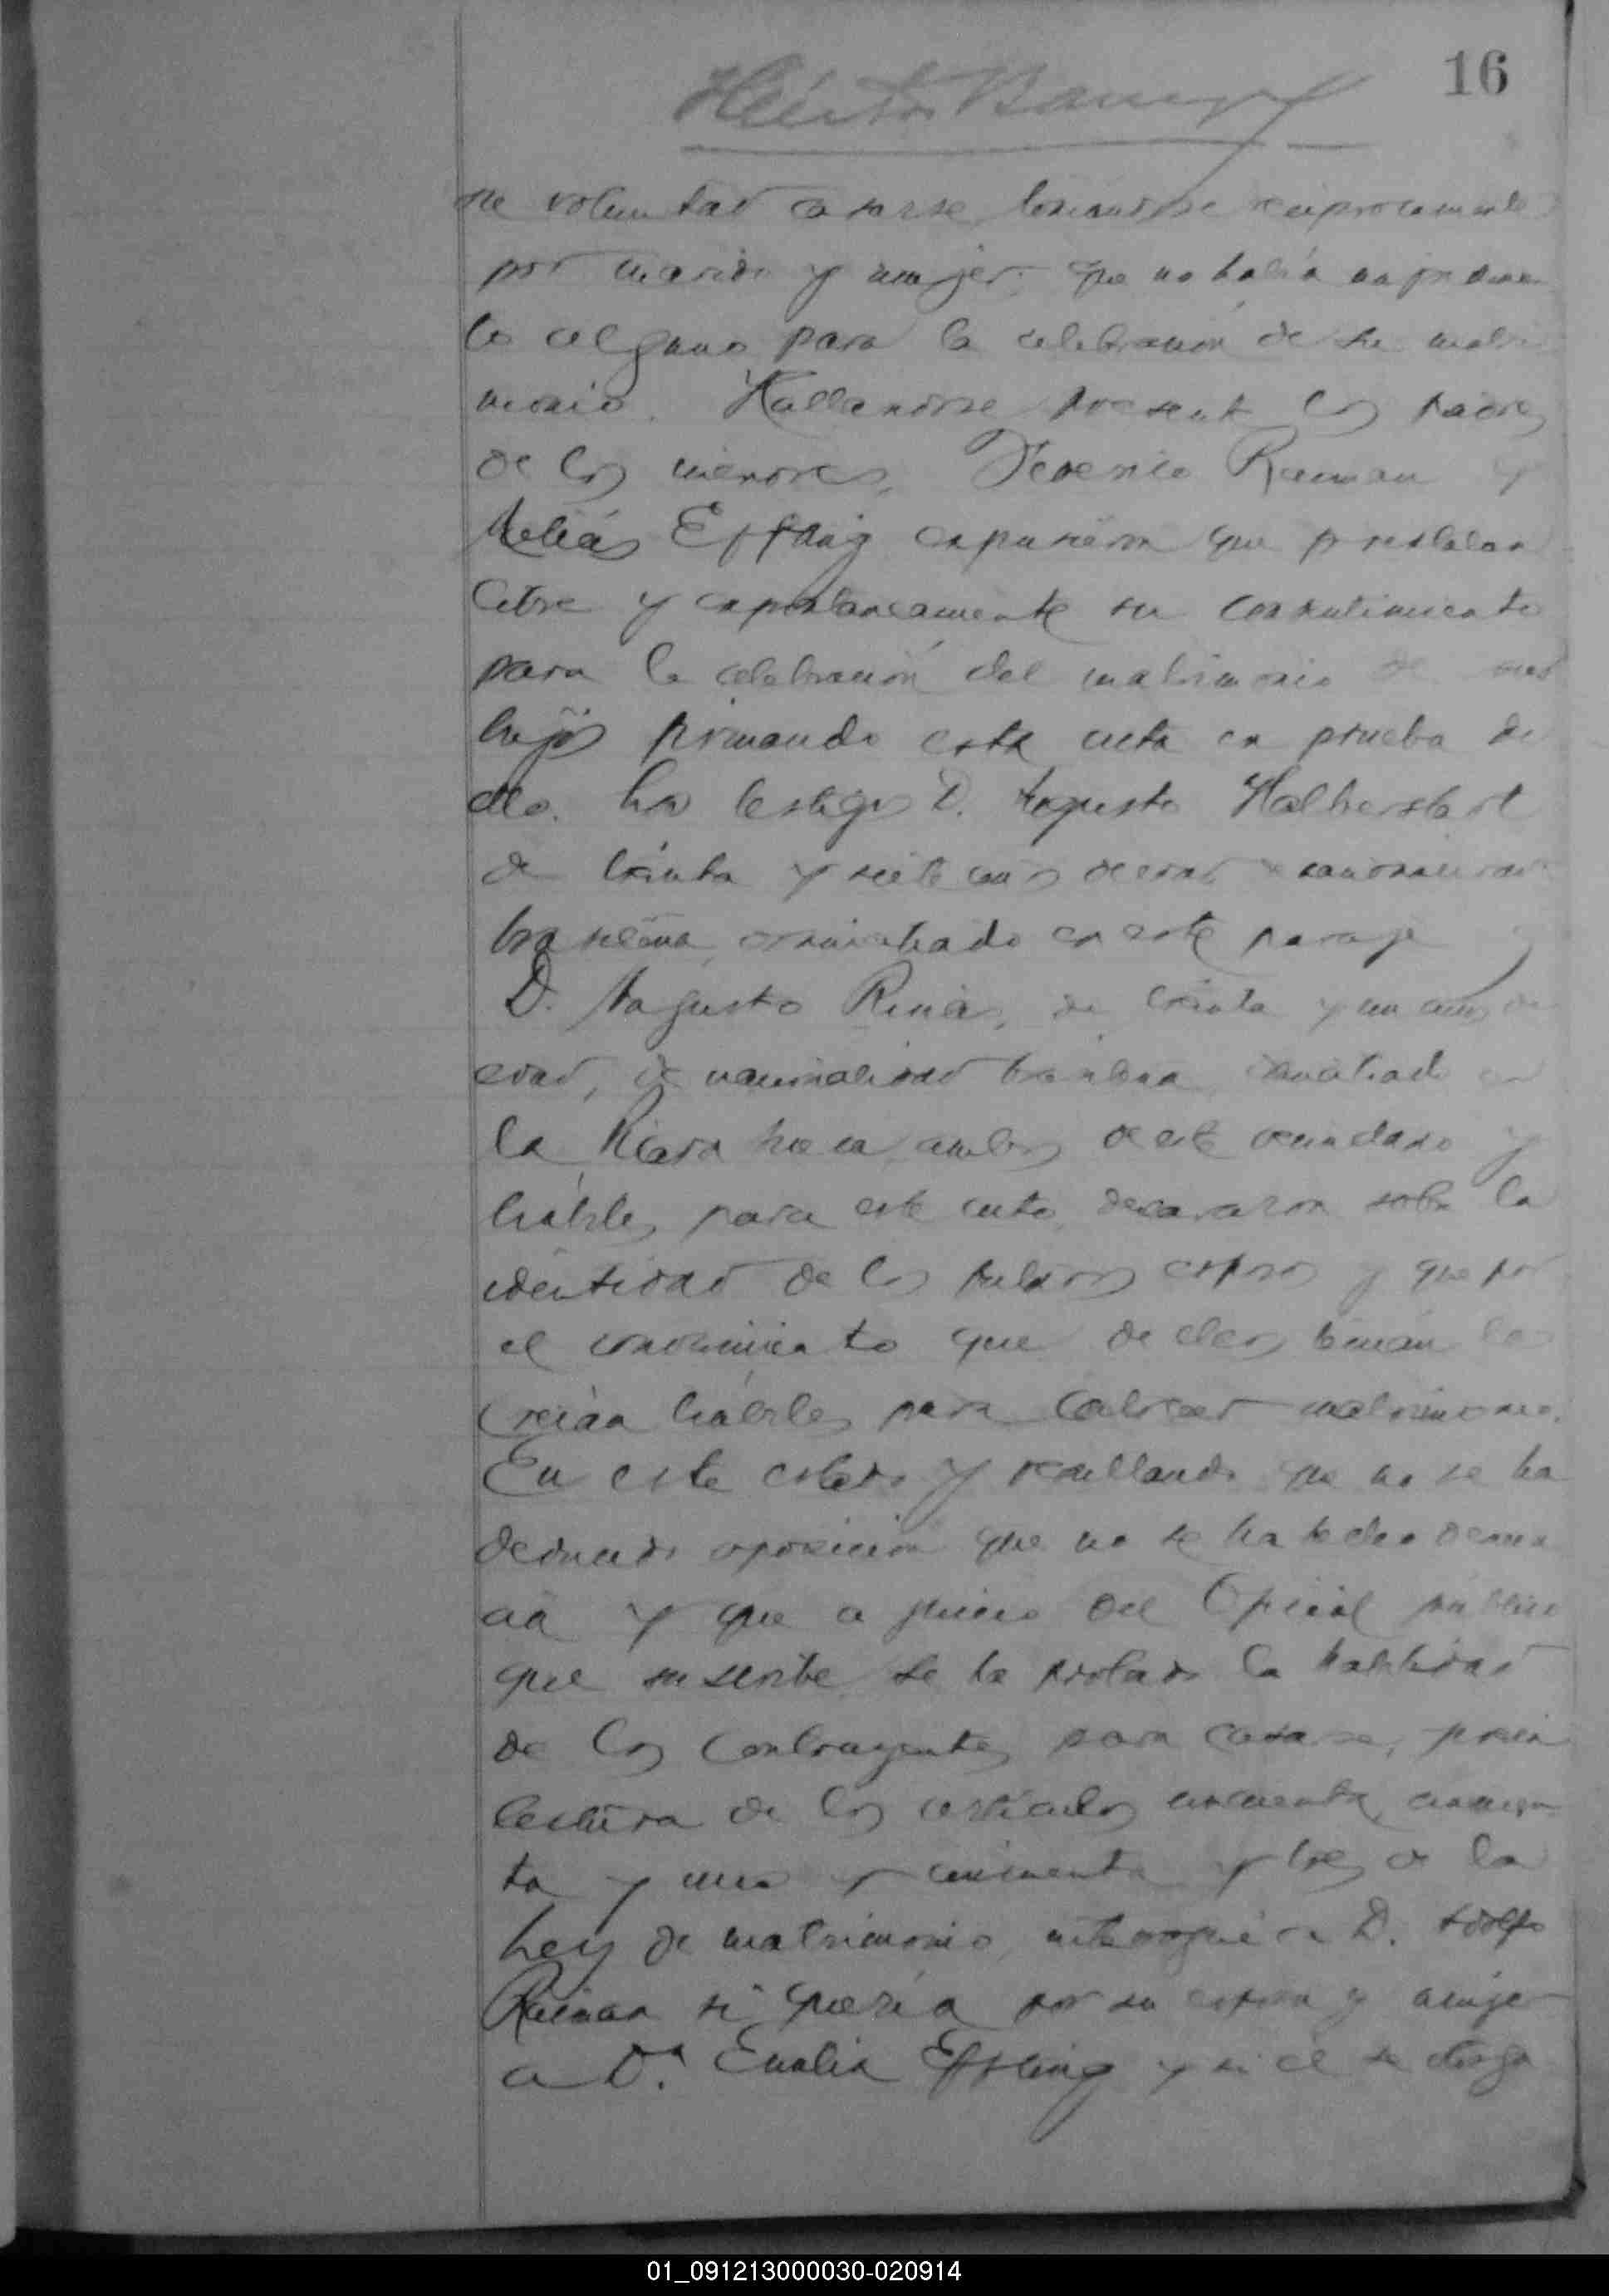 16
Héctor Barreyro
ne voluntad casarse tomandose reciprocamente
por marido y mujer; que no había impedimen
to alguno para la celebración de su matri
monio. Hallandose presente los padres
de los menores, Federico Raiman y
Matías Effting expusieron que prestaban
libre y espontaneamente su consentimiento
para la celebración del matrimonio de sus
hijos firmando esta acta en prueba de
ello. Los testigos D. Augusto Halberstart
de treinta y siete años de edad nacionalidad
brasilera, domiciliado en este paraje y
D. Augusto Rimas, de treinta y un años de
edad, de nacionalidad brasilera domiciliado en
la ambos de este vecindario y
hábiles para este acto, declararon sobre la
identidad de los futuros esposos y que por
el conocimiento que de ellos tenían los
creían hábiles para contraer matrimonio.
En este estado y resultando que no se ha
deducido oposición que no se ha hecho denun
cia y que a juicio del Oficial público
que suscribe se ha probado la habilidad
de los contrayentes para casarse, previa
lectura de los artículos cincuenta, cincuen
ta y uno y cincuenta y tres de la
Ley de matrimonio, interrogué a D. Adolfo
Raiman si quería por su esposa y mujer
a D.ª Emalia Effting y si él se otorga
01_091213000030-020914